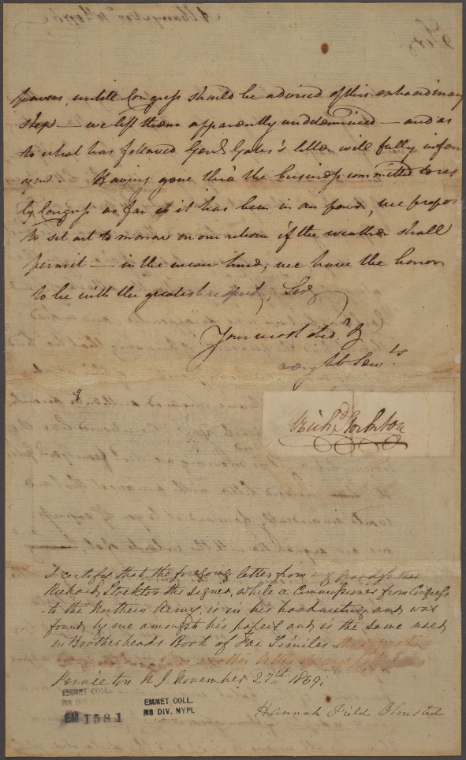 powers, untill Congress should be advised of this extraordinary
step — we left them apparently undetermined — and as
to what has followed Genl. Gates's letter will fully inform
you. — Having gone thro' the business committed to us
by Congress as far as it has been in our power, we propose
to set out to morrow on our return if the weather shall
permit — in the mean time, we have the honor
to be with the greatest respect, Sir,
Your most obedt. &
Hb Servts
Richd. Stockton
I certify that the foregoing letter from my
Richard Stockton the Signer, while a Commissioner from Congress
to the Northern Army, is in his handwriting and was
found by me amongst his papers and is the same used
in Brotherheads Book of Fac Similes
another letter
Princeton N J November 27th 1869.
Hannah Field Olmsted
EMMET COLL.
EM 1581
EMMET COLL.
MS DIV. NYPL